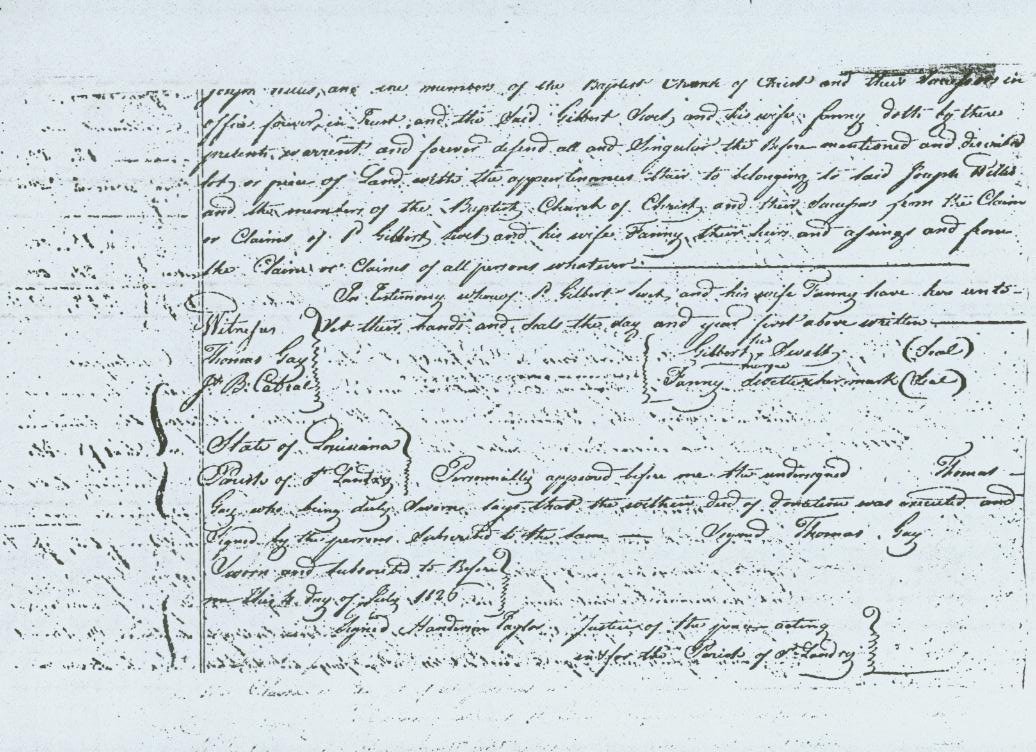 Joseph Willis, and the members of the Baptist Church of Christ and their Sucessors in
office forever, in Trust, and the Said Gilbert Swet, and his wife Fanny doth by these
presents, warrent and forever defend all and Singular the Before mentioned and described
lot, or piece of Land, with the appurtinances their to belonging to said Joseph Willis
and the members, of the Baptist Church of Christ, and their Sucessors from the Claim
or Claims of P. Gilbert Swet, and his wife Fanny, their heirs and assings and from
the Claim or Claims of all persons whatever.
In Testimony whereof P. Gilbert Swet, and his wife Fanny have here unto
Witness Set their hands and Seals the day and year first above written
Thomas Gay Gilbert his x Swett (Seal)
Jn. B. Cabral Fanny Swett x her mark (Seal)
State of Louisiana
Parish of St. Landry Personnally appeared before me the undersigned Thomas
Gay who being duly Sworn, says that the within Deed of donation was executed and
Signed by the persons Subscribed to the same — Signed Thomas Gay
Sworn and subscribed to Before
me this day of July 1826
Signed Handerson Taylor Justice of the peace acting
in & for the Parish of St. Landry